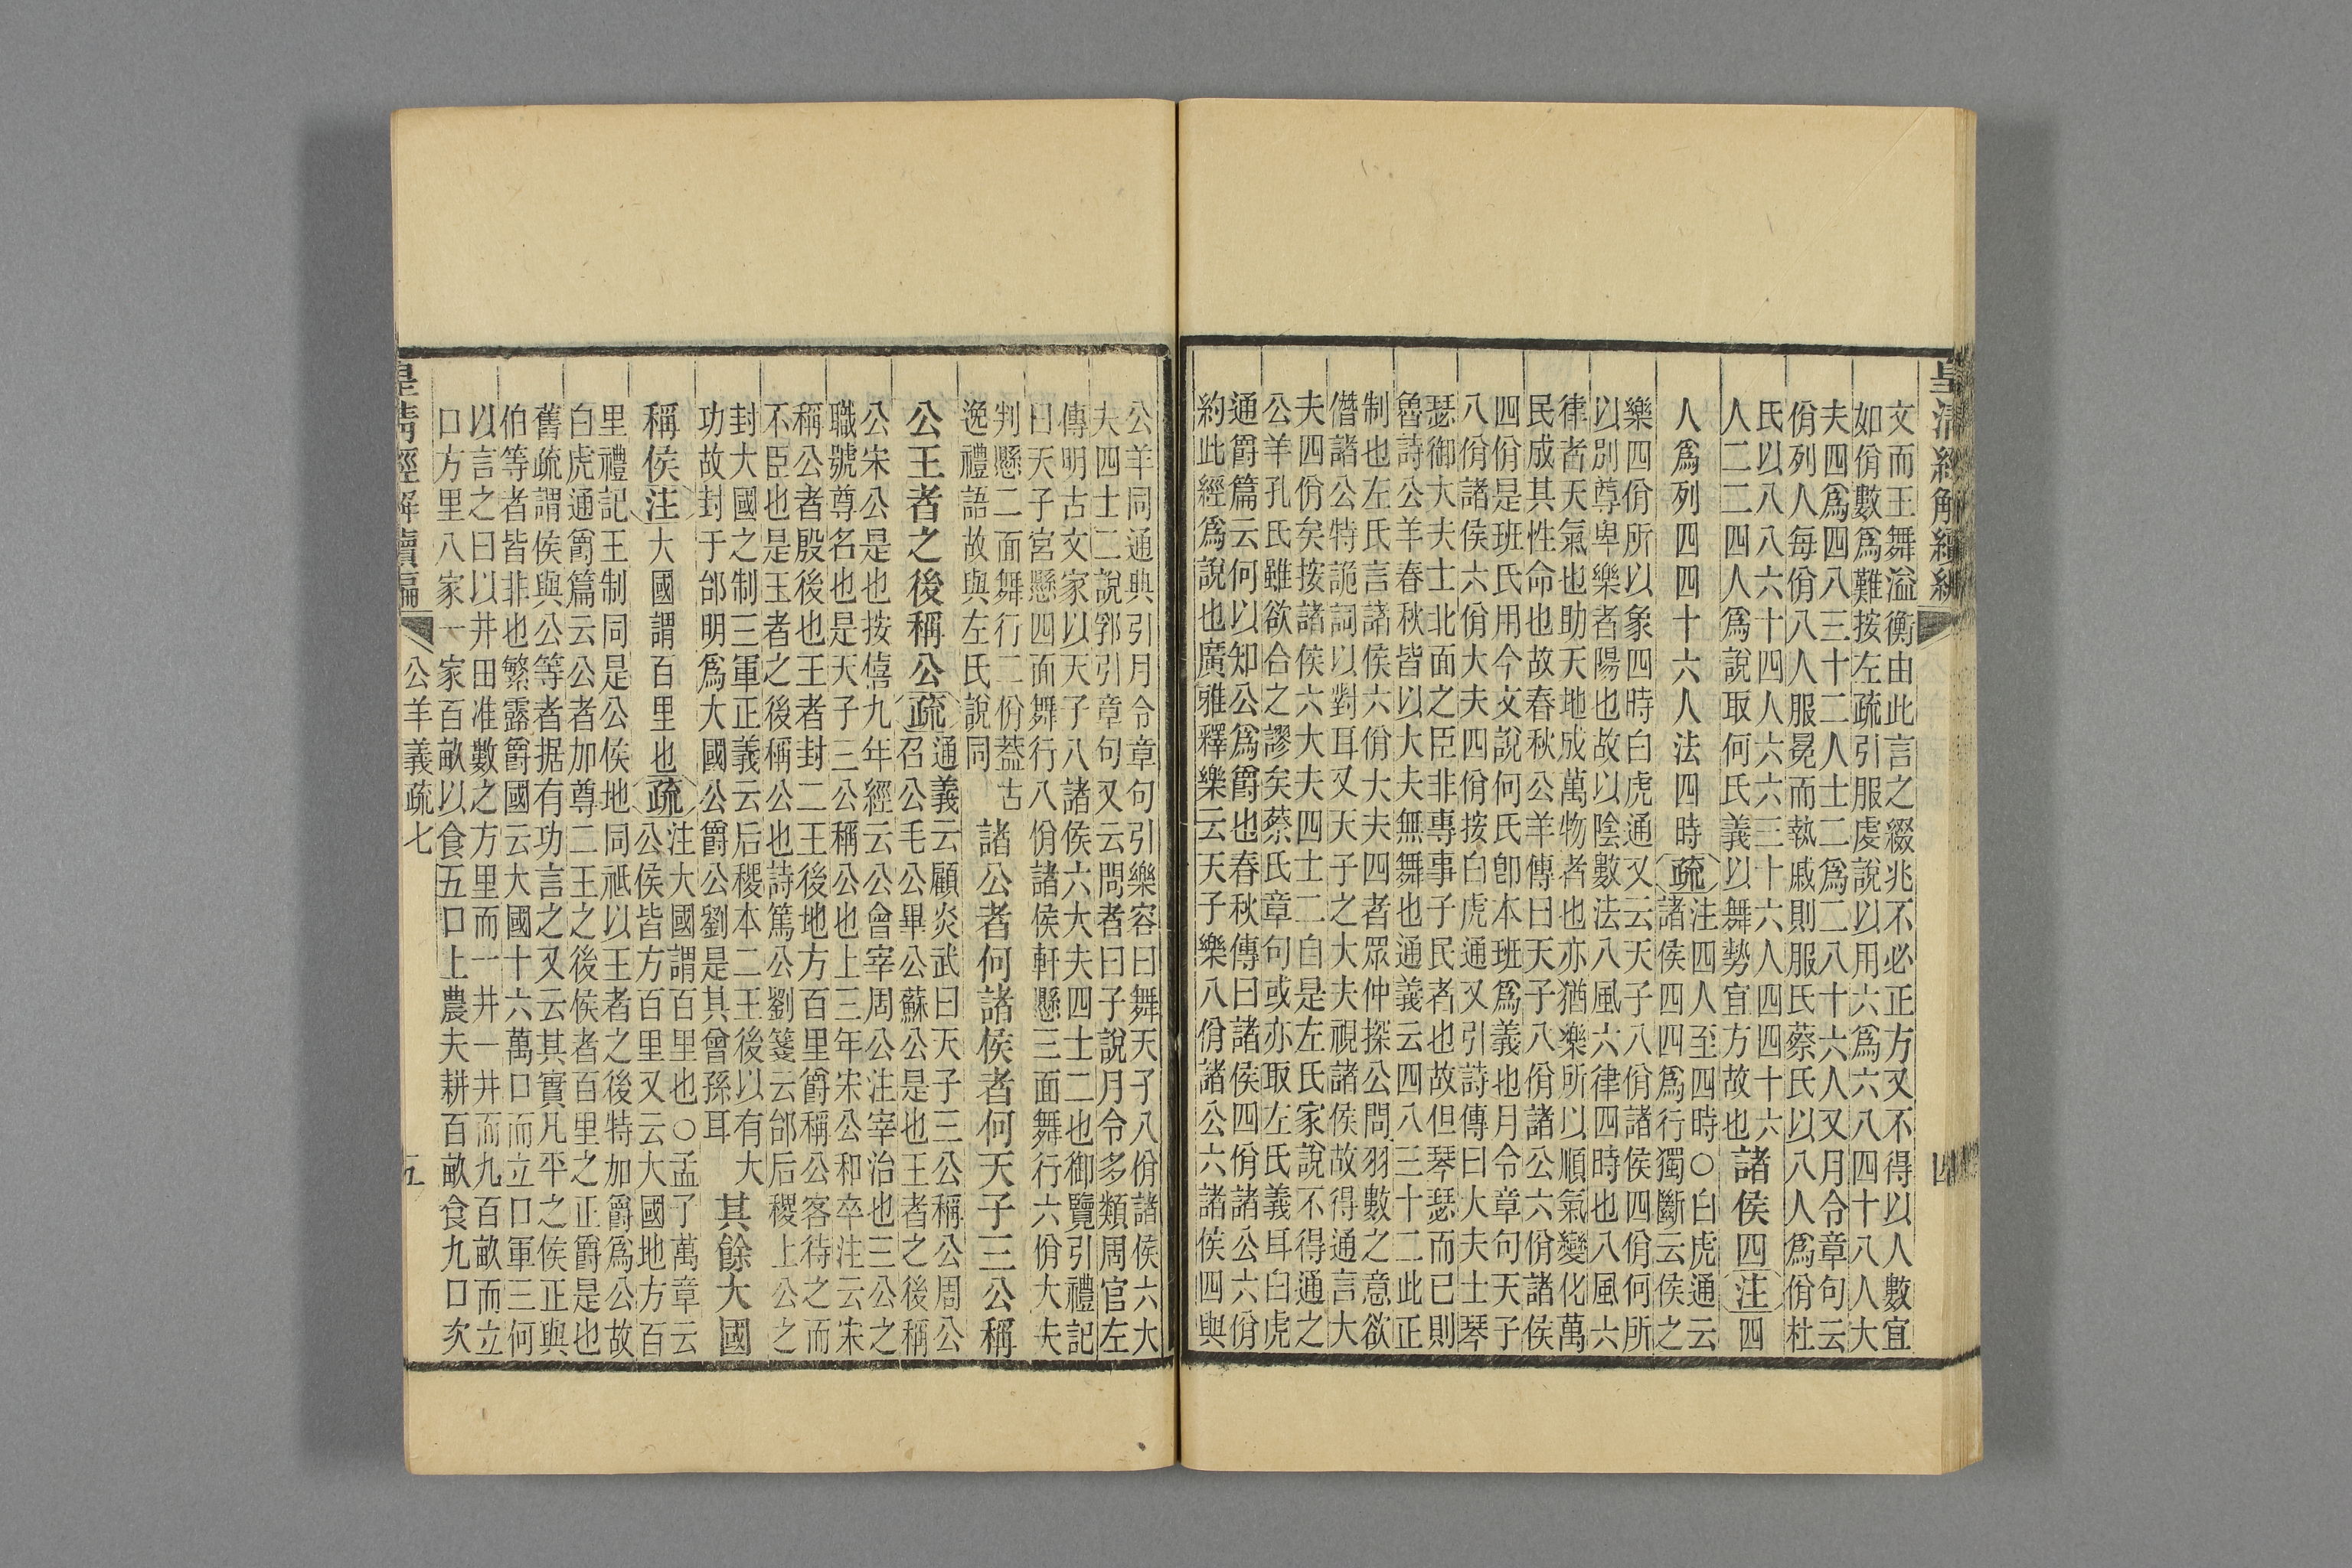 皇清經解續編
四
文而王舞溢衡由此言之綴兆不必正方又不得以人數宜
如佾數爲難按左疏引服虔說以用六爲六八四十八人大
夫四爲四八三十二人士二爲二八十六人又月令章句云
佾列人每佾八人服冕而執戚則服氏蔡氏以八人爲佾杜
氏以八八六十四人六六三十六人四四十六
人二二四人爲說取何氏義以舞勢宜方故也
諸侯四注四
人爲列四四十六人法四時疏
注四人至四時○白虎通云
諸侯四四爲行獨斷云侯之
樂四佾所以象四時白虎通又云天子八佾諸侯四佾何所
以別尊卑樂者陽也故以陰數法八風六律四時也八風六
律者天氣也助天地成萬物者也亦猶樂所以順氣變化萬
民成其性命也故春秋公羊傳曰天子八佾諸公六佾諸侯
四佾是班氏用今文說何氏卽本班爲義也月令章句天子
八佾諸侯六佾大夫四佾按白虎通又引詩傳曰大夫士琴
瑟御大夫士北面之臣非專事子民者也故但琴瑟而已則
魯詩公羊春秋皆以大夫無舞也通義云四八三十二此正
制也左氏言諸侯六佾大夫四者眾仲探公問羽數之意欲
僭諸公特詭詞以對耳又天子之大夫視諸侯故得通言大
夫四佾矣按諸侯六大夫四士二自是左氏家說不得通之
公羊孔氏雖欲合之謬矣蔡氏章句或亦取左氏義耳白虎
通爵篇云何以知公爲爵也春秋傳曰諸侯四佾諸公六佾
約此經爲說也廣雅釋樂云天子樂八佾諸公六諸侯四與
公羊同通典引月令章句引樂容曰舞天子八佾諸侯六大
夫四士二說郛引章句又云問者曰子說月令多類周官左
傳明古文家以天子八諸侯六大夫四士二也御覽引禮記
曰天子宮懸四面舞行八佾諸侯軒懸三面舞行六佾大夫
判懸二面舞行二佾葢古
逸禮語故與左氏說同
諸公者何諸侯者何天子三公稱
公王者之後稱公疏
通義云顧炎武曰天子三公稱公周公
召公毛公畢公蘇公是也王者之後稱
公宋公是也按僖九年經云公會宰周公注宰治也三公之
職號尊名也是天子三公稱公也上三年宋公和卒注云宋
稱公者殷後也王者封二王後地方百里爵稱公客待之而
不臣也是王者之後稱公也詩篤公劉箋云邰后稷上公之
封大國之制三軍正義云后稷本二王後以有大
功故封于邰明爲大國公爵公劉是其曾孫耳
其餘大國
稱侯注大國謂百里也疏
注大國謂百里也○孟子萬章云
公侯皆方百里又云大國地方百
里禮記王制同是公侯地同祇以王者之後特加爵爲公故
白虎通爵篇云公者加尊二王之後侯者百里之正爵是也
舊疏謂侯與公等者据有功言之又云其實凡平之侯正與
伯等者皆非也繁露爵國云大國十六萬口而立口軍三何
以言之曰以井田准數之方里而一井一井而九百畝而立
口方里八家一家百畝以食五口上農夫耕百畝食九口次
皇清經解續編
公羊義疏七
五